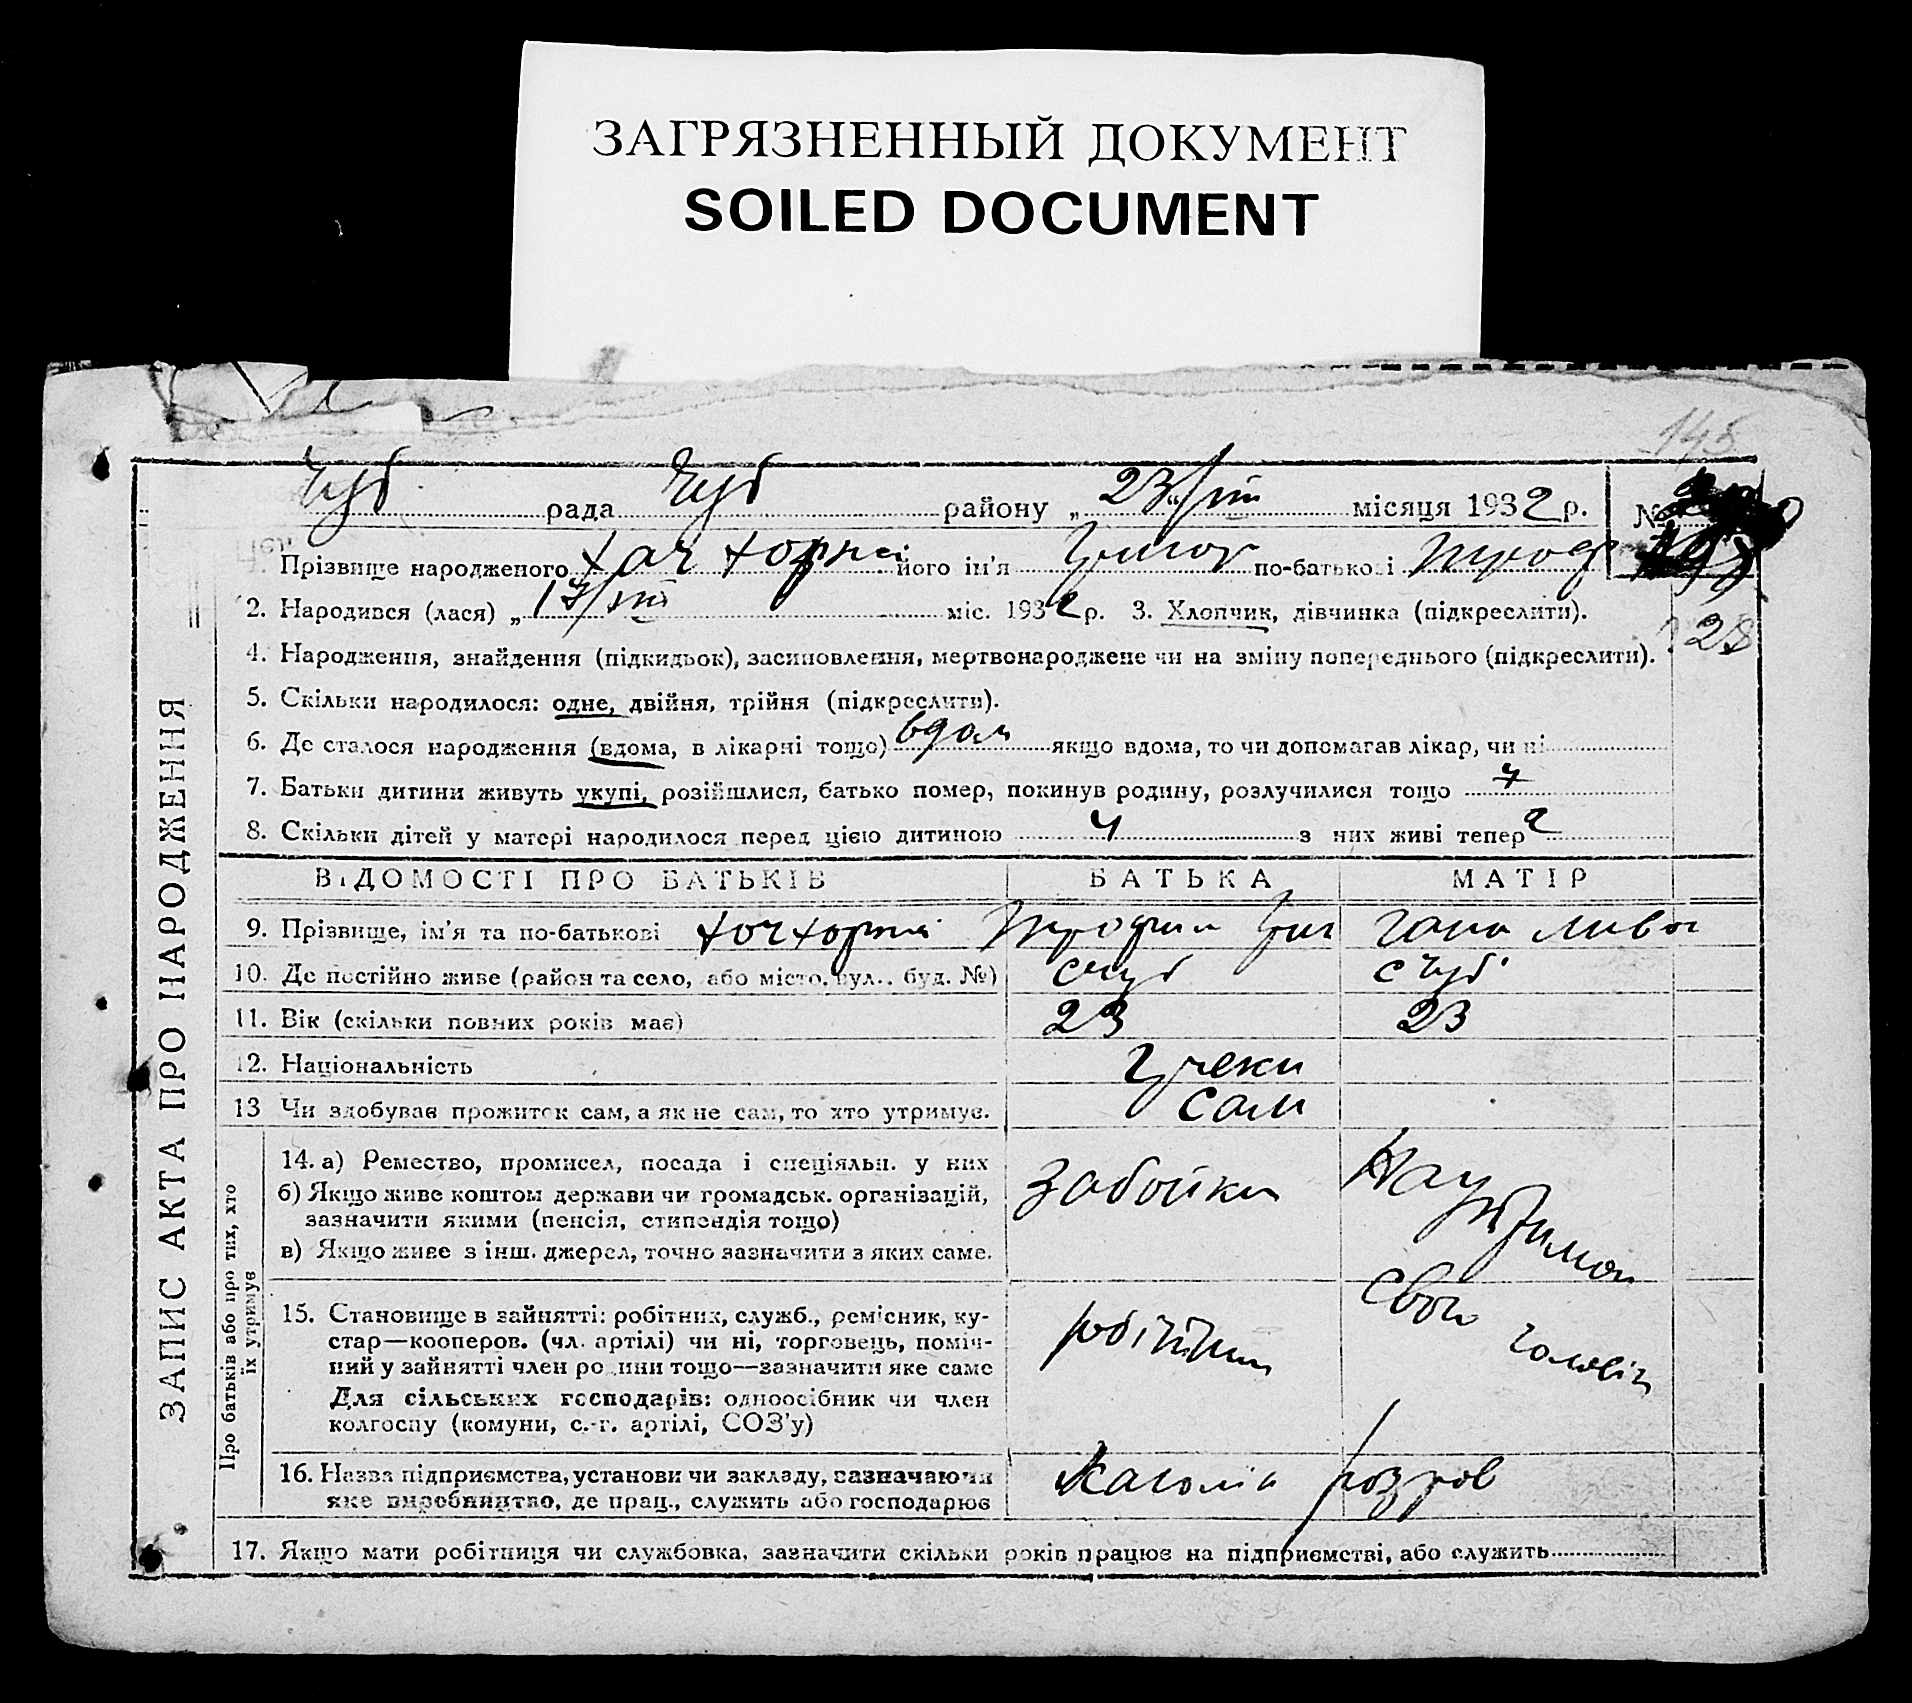 ЗАГРЯЗНЕННЫЙ ДОКУМЕНТ
SOILED DOCUMENT
145
Чуб рада Чуб району „ 23/VIII місяця 1932 р. №
1. Прізвище народженого його ім'я по-батькові
2. Народився (лася) „ 17/VIII міс. 1932 р. 3. Хлопчик, дівчинка (підкреслити).
28
4. Народження, знайдення (підкидьок), засиновлення, мертвонароджене чи на зміну попереднього (підкреслити).
5. Скільки народилося: одне, двійня, трійня (підкреслити).
6. Де сталося народження (вдома, в лікарні тощо) вдома якщо вдома, то чи допомагав лікар, чи ні
7. Батьки дитини живуть укупі, розійшлися, батько помер, покинув родину, розлучилися тощо
8. Скільки дітей у матері народилося перед цією дитиною 4 з них живі тепер 2
ВІДОМОСТІ ПРО БАТЬКІВ БАТЬКА МАТІР
9. Прізвище, ім'я та по-батькові
10. Де постійно живе (район та село, або місто, вул., буд. №) с Чуб с Чуб
11. Вік (скільки повних років має) 23 23
12. Національність Греки
13 Чи здобував прожиток сам, а як не сам, то хто утримує. Сам
14. а) Ремество, промисел, посада і спеціяльн. у них Забойки На
б) Якщо живе коштом держави чи громадськ. організацій,
зазначити якими (пенсія, стипендія тощо)
в) Якщо живе з інш. джерел, точно зазначити з яких саме.
15. Становище в зайнятті: робітник, служб., ремісник, ку-
стар—кооперов. (чл. артілі) чи ні, торговець, поміч-
ний у зайнятті член родини тощо—зазначити яке саме
Для сільських господарів: одноосібник чи член
колгоспу (комуни, с.-г. артілі, СОЗ'у)
робітник
свого
чоловік
16. Назва підприємства, установи чи закладу, зазначаючи
яке виробництво, де прац., служить або господарює
17. Якщо мати робітниця чи службовка, зазначити скільки років працює на підприємстві, або служить
ЗАПИС АКТА ПРО НАРОДЖЕННЯ
Про батьків або про тих, хто
їх утримує